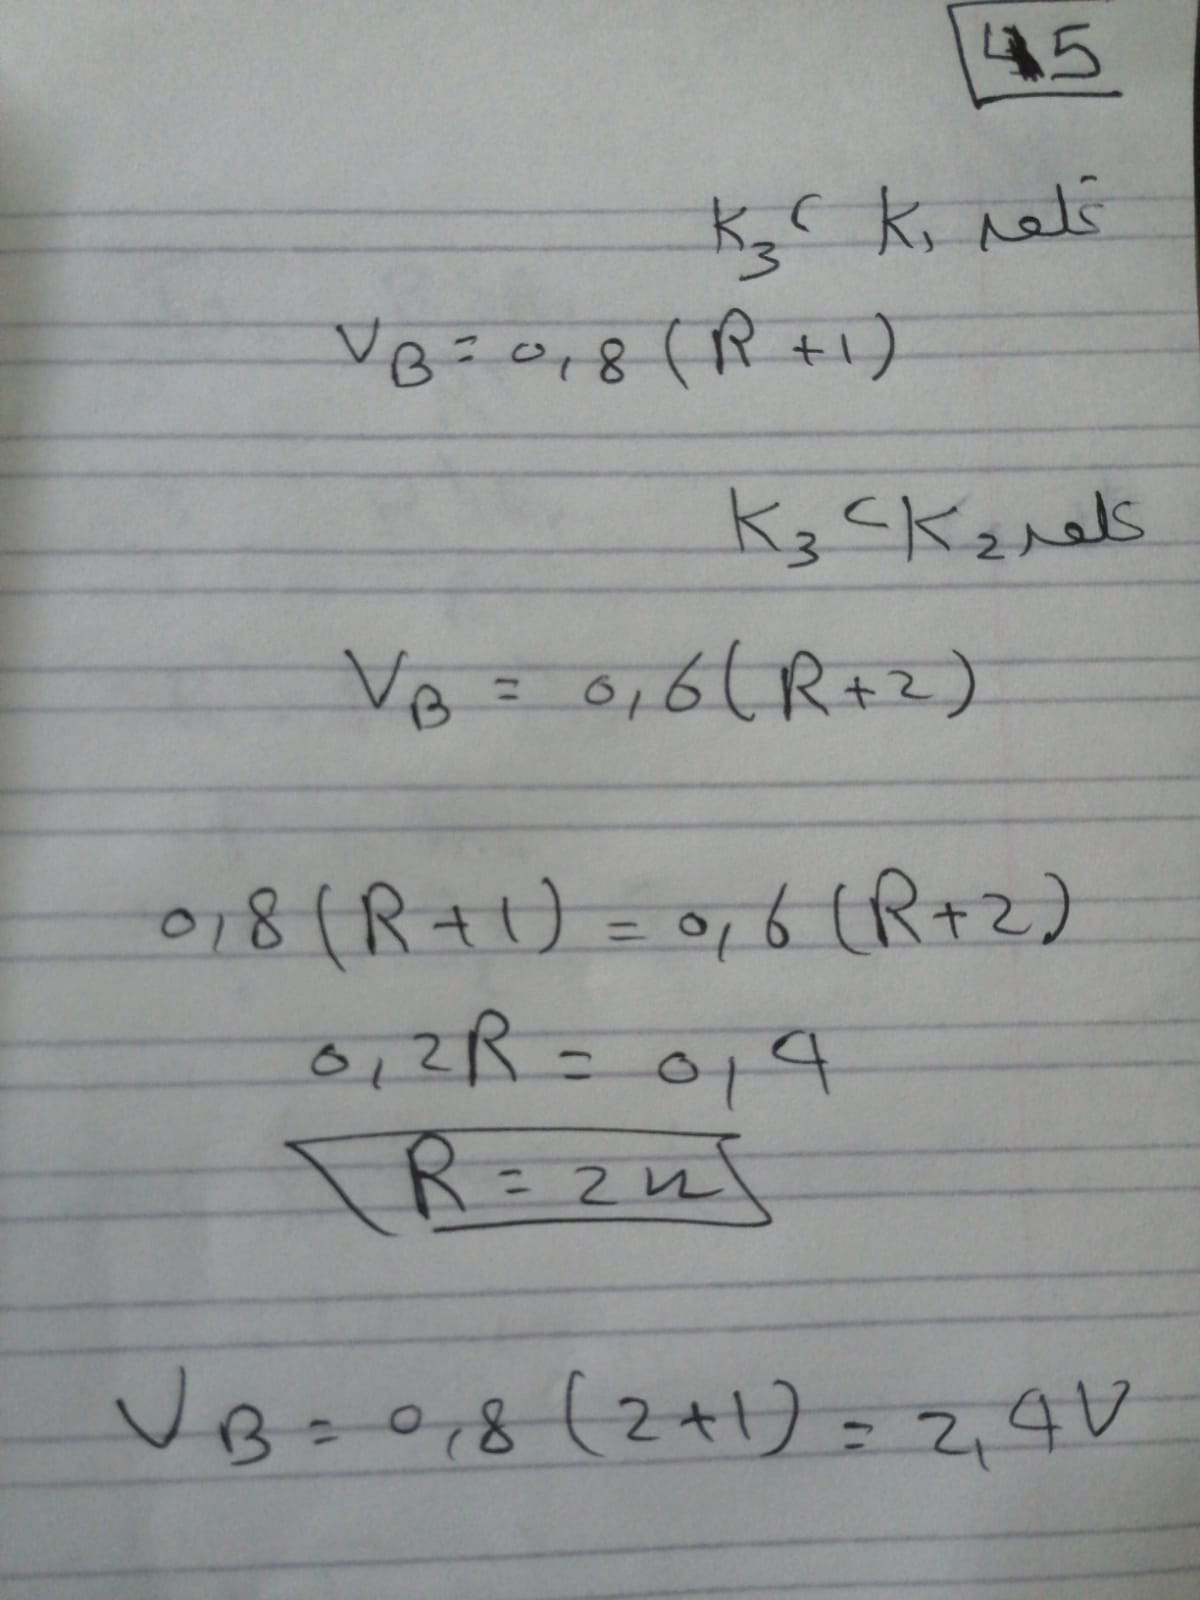 45
غلق K₁ ، K₃
V_B = 0,8 (R + 1)
غلق K₂ ، K₃
V_B = 0,6 (R + 2)
0,8 (R + 1) = 0,6 (R + 2)
0,2R = 0,4
R = 2Ω
V_B = 0,8 (2 + 1) = 2,4 V